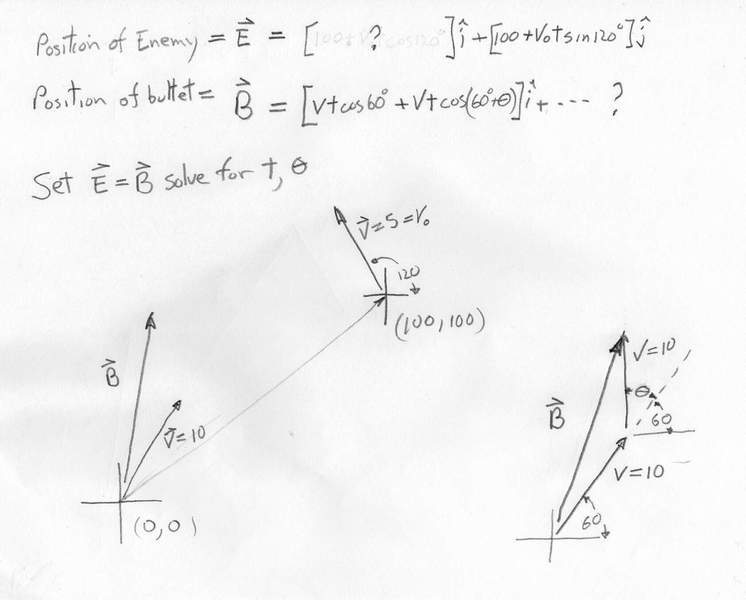 Position of Enemy = E⃗ = [100+V₀t cos120° ? ]î + [100+V₀t sin120°]ĵ
Position of bullet = B⃗ = [Vtcos60° + Vtcos(60°+θ)]î + --- ?
Set E⃗ = B⃗ solve for t, θ
V⃗=5=V₀
120
(100,100)
B⃗
V⃗=10
(0,0)
V=10
θ
60
B⃗
V=10
60